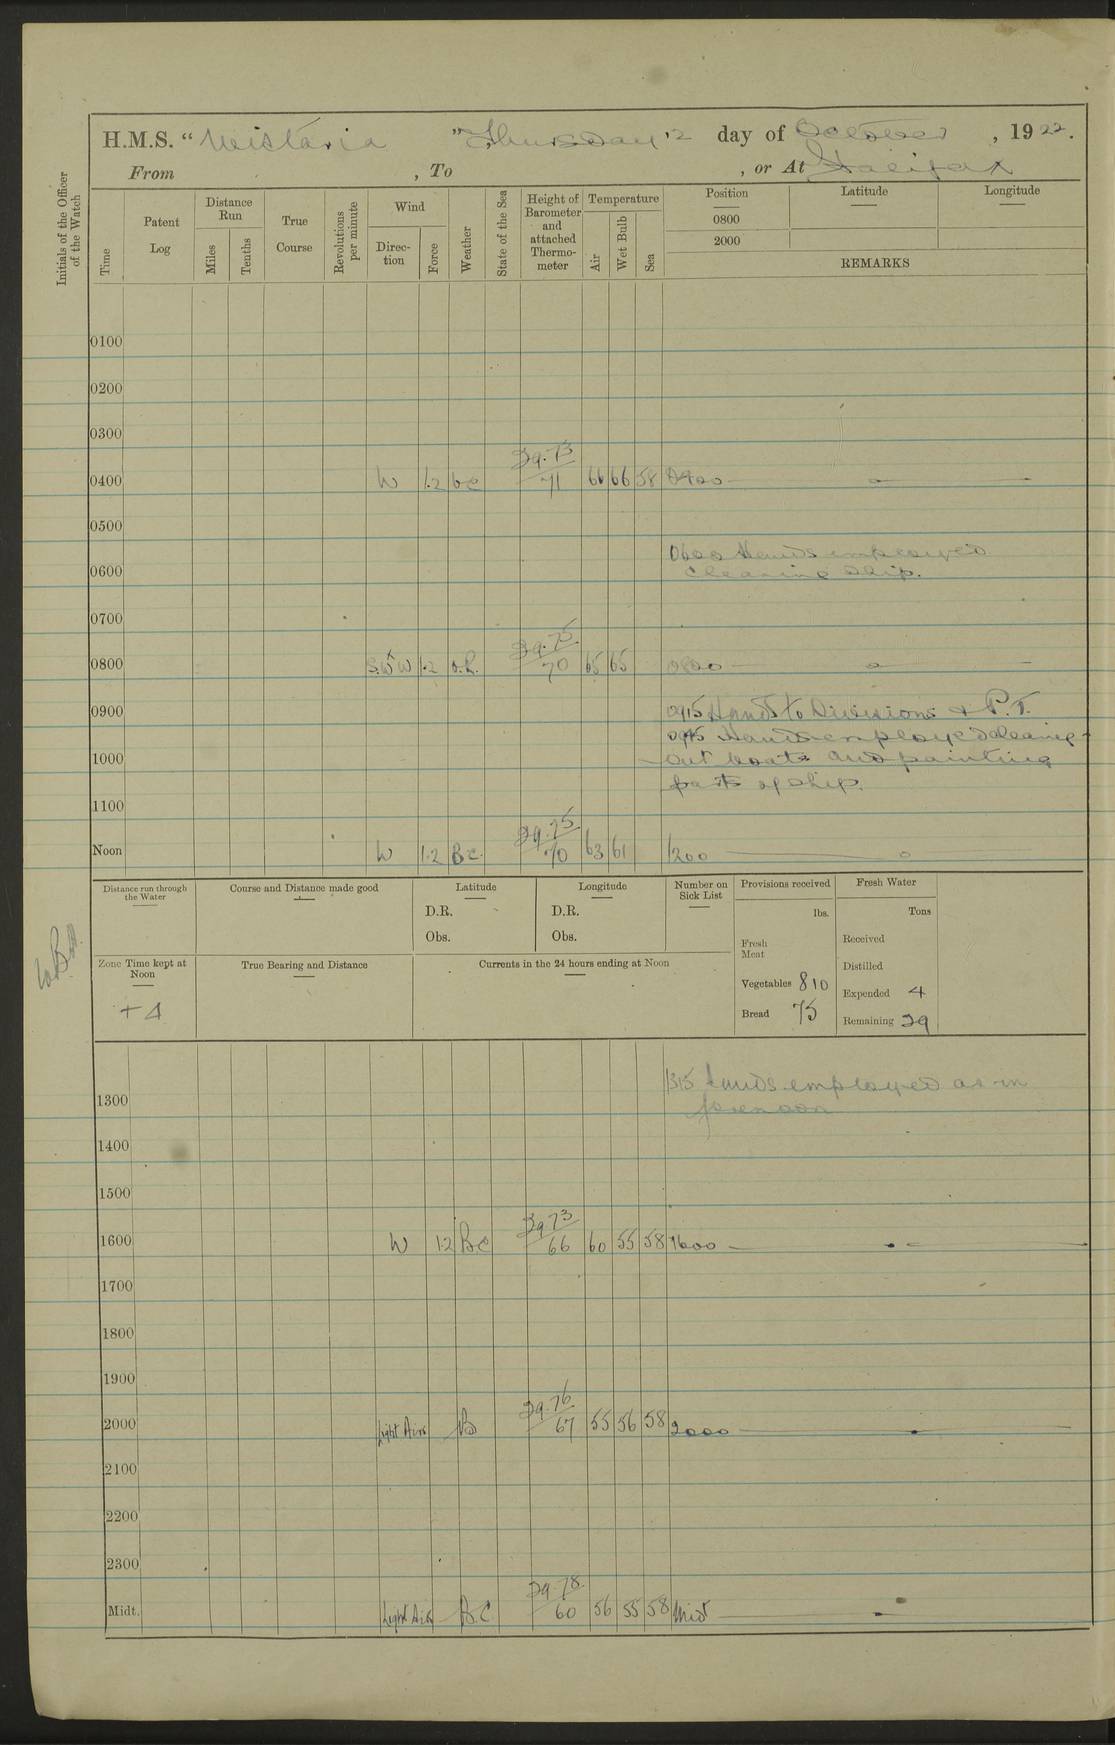 H.M.S. “ Wistaria ” Thursday 12 day of October , 1922.
From , To , or At Halifax
Initials of the Officer of the Watch
Time
Patent Log
Distance Run
Miles
Tenths
True Course
Revolutions per minute
Wind
Direc- tion
Force
Weather
State of the Sea
Height of Barometer and attached Thermo- meter
Temperature
Air
Wet Bulb
Sea
Position
0800
2000
Latitude
Longitude
REMARKS
0100
0200
0300
0400 W 1.2 bc 29.73 71 66 66 58 0400
0500
0600 Hands employed
cleaning ship.
0600
0700
0800 S.W'W 1.2 29.75 70 65 65 0800
0900 0915 Hands to Divisions & P.T.
0945 Hands employed cleaning
1000 out boats and painting
parts of ship.
1100
Noon W 1.2 Bc. 29.75 70 63 61 1200
Distance run through the Water
Course and Distance made good
Latitude
D.R.
Obs.
Longitude
D.R.
Obs.
Number on Sick List
Provisions received
lbs.
Fresh Meat
Vegetables 810
Bread 75
Fresh Water
Tons
Received
Distilled
Expended 4
Remaining 29
Zone Time kept at Noon
+4
True Bearing and Distance
Currents in the 24 hours ending at Noon
1315 Hands employed as in
1300 forenoon
1400
1500
1600 W 1.2 Bc 29.73 66 60 55 58 1600
1700
1800
1900
2000 Light Airs B 29.76 67 55 56 58 2000
2100
2200
2300
Midt. Light Airs B.C 29.78 60 56 55 58 Midt